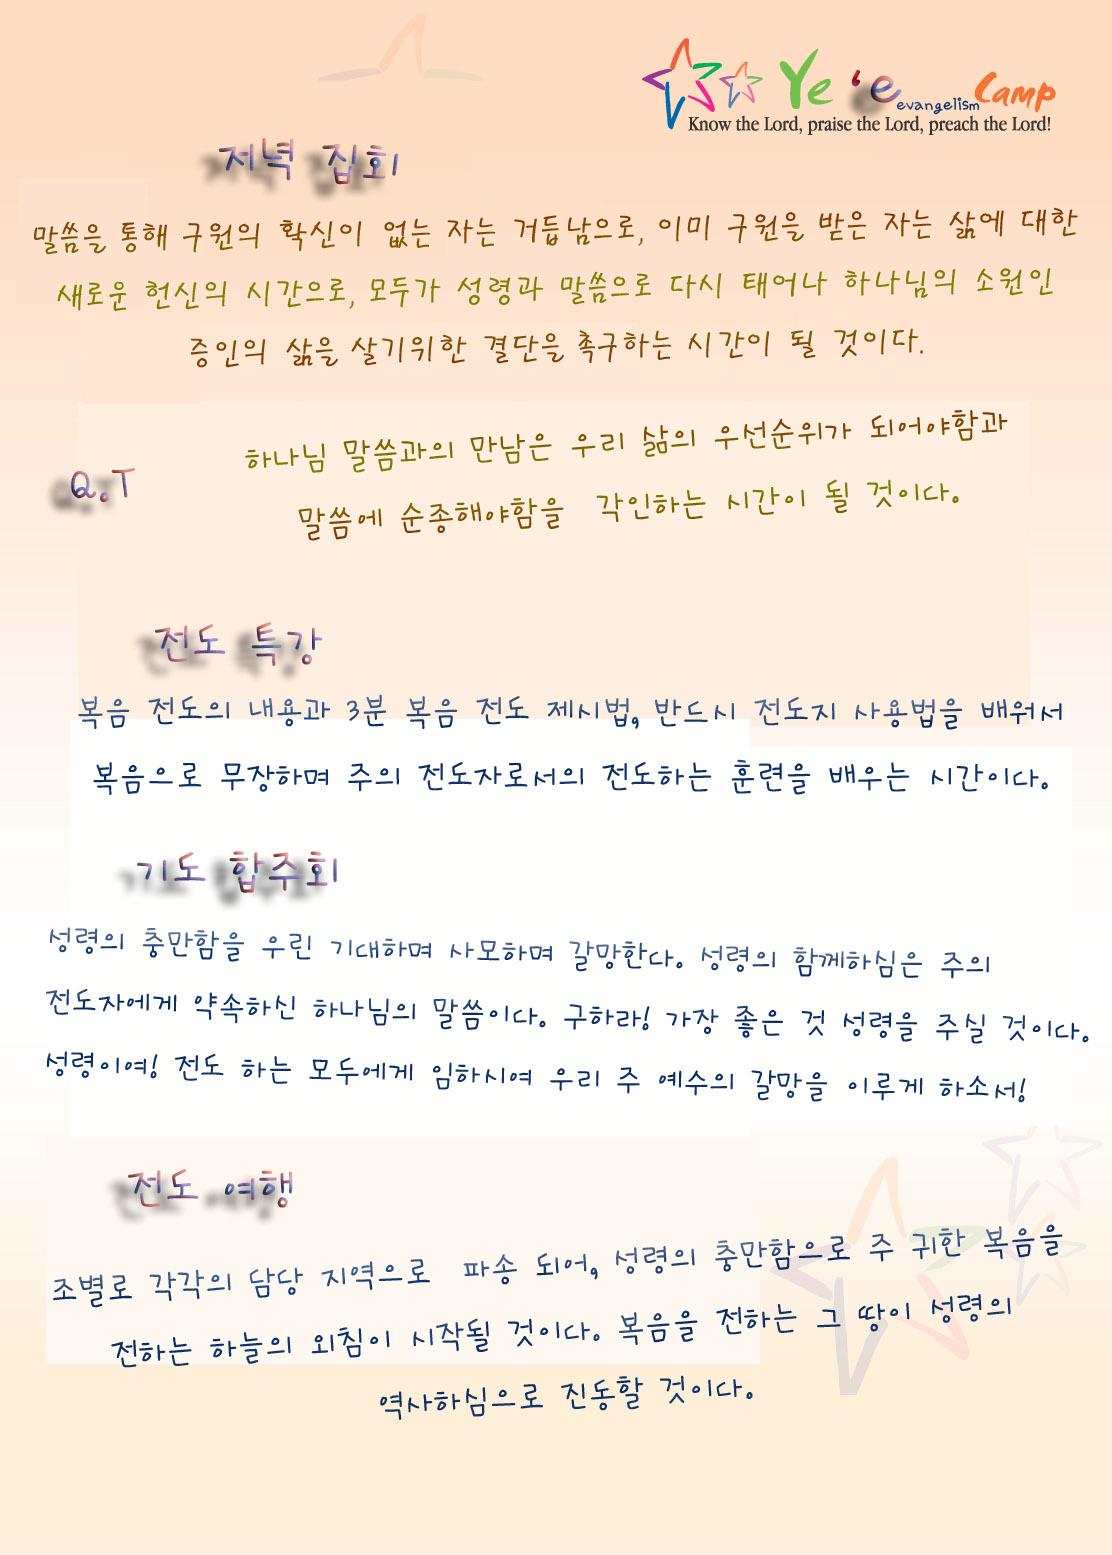 Ye 'e evangelism Camp
Know the Lord, praise the Lord, preach the Lord!
저녁 집회
말씀을 통해 구원의 확신이 없는 자는 거듭남으로, 이미 구원을 받은 자는 삶에 대한
새로운 헌신의 시간으로, 모두가 성령과 말씀으로 다시 태어나 하나님의 소원인
증인의 삶을 살기위한 결단을 촉구하는 시간이 될 것이다.
하나님 말씀과의 만남은 우리 삶의 우선순위가 되어야함과
Q.T
말씀에 순종해야함을 각인하는 시간이 될 것이다.
전도 특강
복음 전도의 내용과 3분 복음 전도 제시법, 반드시 전도지 사용법을 배워서
복음으로 무장하며 주의 전도자로서의 전도하는 훈련을 배우는 시간이다.
기도 합주회
성령의 충만함을 우린 기대하며 사모하며 갈망한다. 성령의 함께하심은 주의
전도자에게 약속하신 하나님의 말씀이다. 구하라! 가장 좋은 것 성령을 주실 것이다.
성령이여! 전도 하는 모두에게 임하시여 우리 주 예수의 갈망을 이루게 하소서!
전도 여행
조별로 각각의 담당 지역으로 파송 되어, 성령의 충만함으로 주 귀한 복음을
전하는 하늘의 외침이 시작될 것이다. 복음을 전하는 그 땅이 성령의
역사하심으로 진동할 것이다.